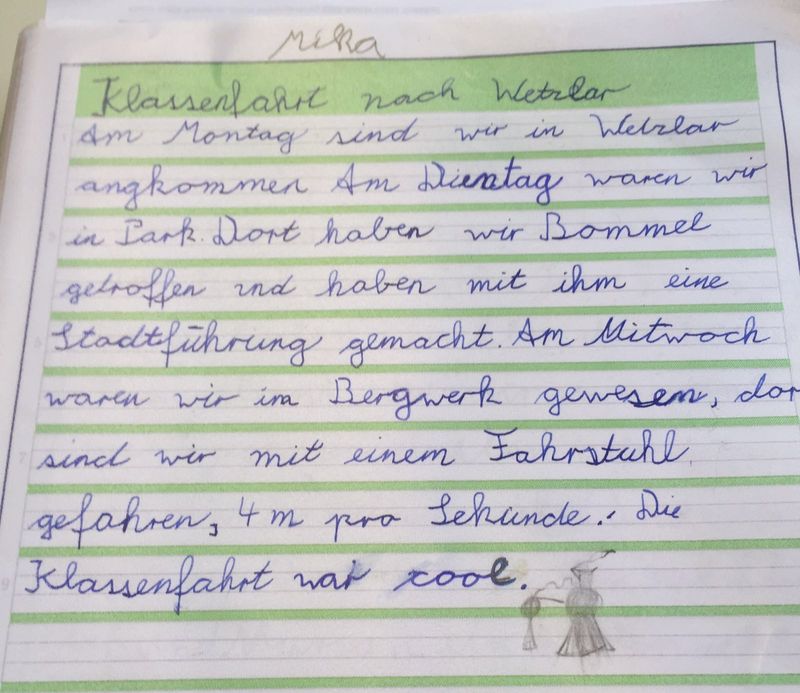 Mika
Klassenfahrt nach Wetzlar
Am Montag sind wir in Wetzlar
angkommen Am Dientag waren wir
in Park. Dort haben wir Bommel
getroffen und haben mit ihm eine
Stadtführung gemacht. Am Mitwoch
waren wir im Bergwerk gewesen, dor
sind wir mit einem Fahrstuhl
gefahren, 4 m pro Sekunde. Die
Klassenfahrt war cool.